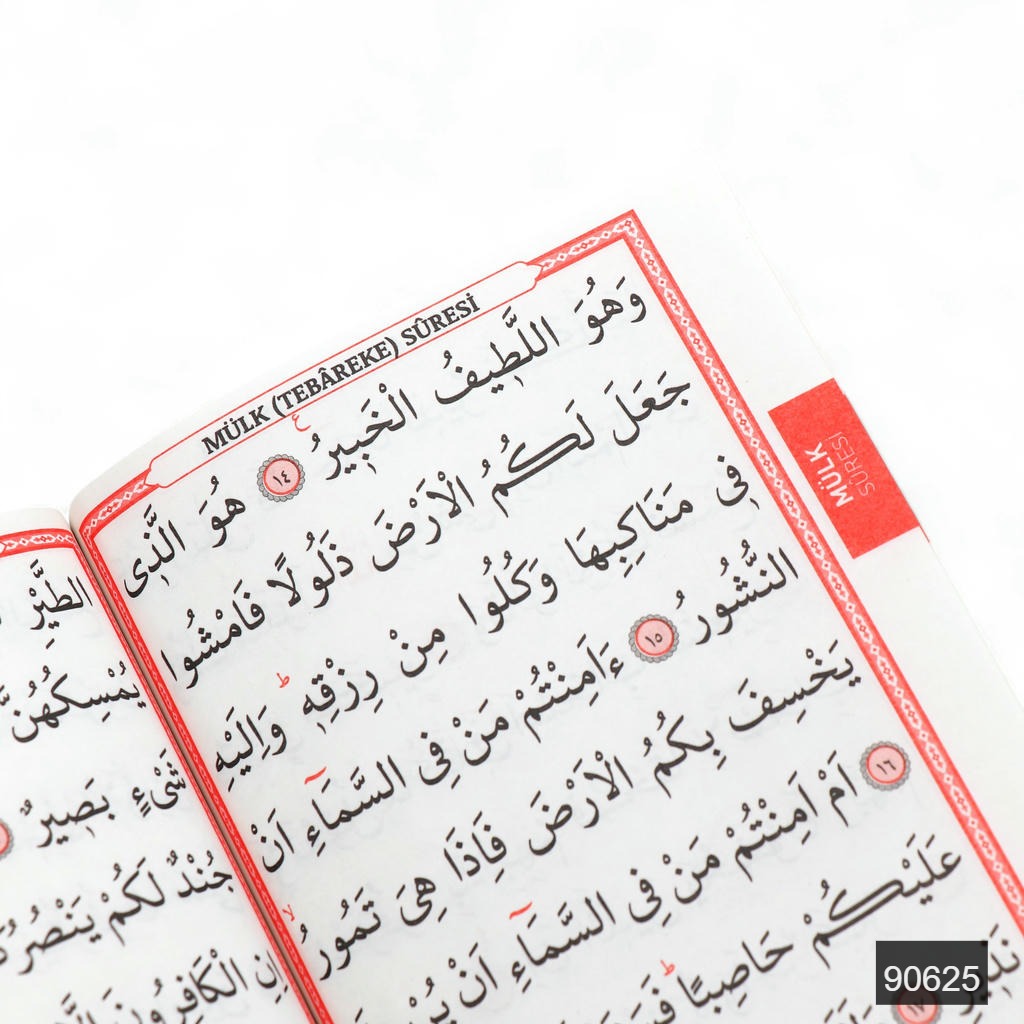 MÜLK (TEBÂREKE) SÛRESİ
وَهُوَ اللَّطِيفُ الْخَبِيرُ ع ﴿١٤﴾ هُوَ الَّذٖى
جَعَلَ لَكُمُ الْاَرْضَ ذَلُولًا فَامْشُوا
فٖى مَنَاكِبِهَا وَكُلُوا مِنْ رِزْقِهٖ ط وَاِلَيْهِ
النُّشُورُ ﴿١٥﴾ ءَاَمِنْتُمْ مَنْ فِى السَّمَٓاءِ اَنْ
يَخْسِفَ بِكُمُ الْاَرْضَ فَاِذَا هِىَ تَمُورُ لا
﴿١٦﴾ اَمْ اَمِنْتُمْ مَنْ فِى السَّمَٓاءِ اَنْ
عَلَيْكُمْ حَاصِبًا ط
MÜLK
SÛRESİ
الطَّيْرِ
يُمْسِكُهُنَّ
شَىْءٍ بَصٖيرٌ
جُنْدٌ لَكُمْ
اِنِ الْكَافِرُونَ
90625